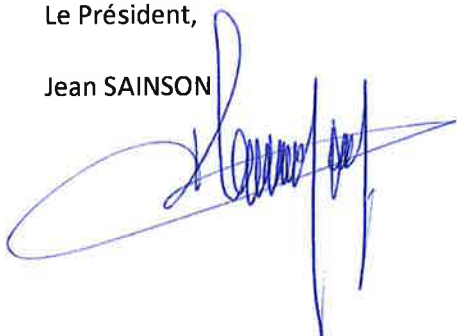 Le Président,
Jean SAINSON